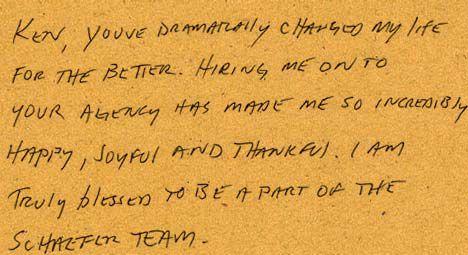 KEN, YOUVE DRAMATICALLY CHANGED MY LIFE
FOR THE BETTER. HIRING ME ON TO
YOUR AGENCY HAS MADE ME SO INCREDIBLY
HAPPY, JOYFUL AND THANKFUL. I AM
TRULY BLESSED TO BE A PART OF THE
SCHAEFER TEAM.